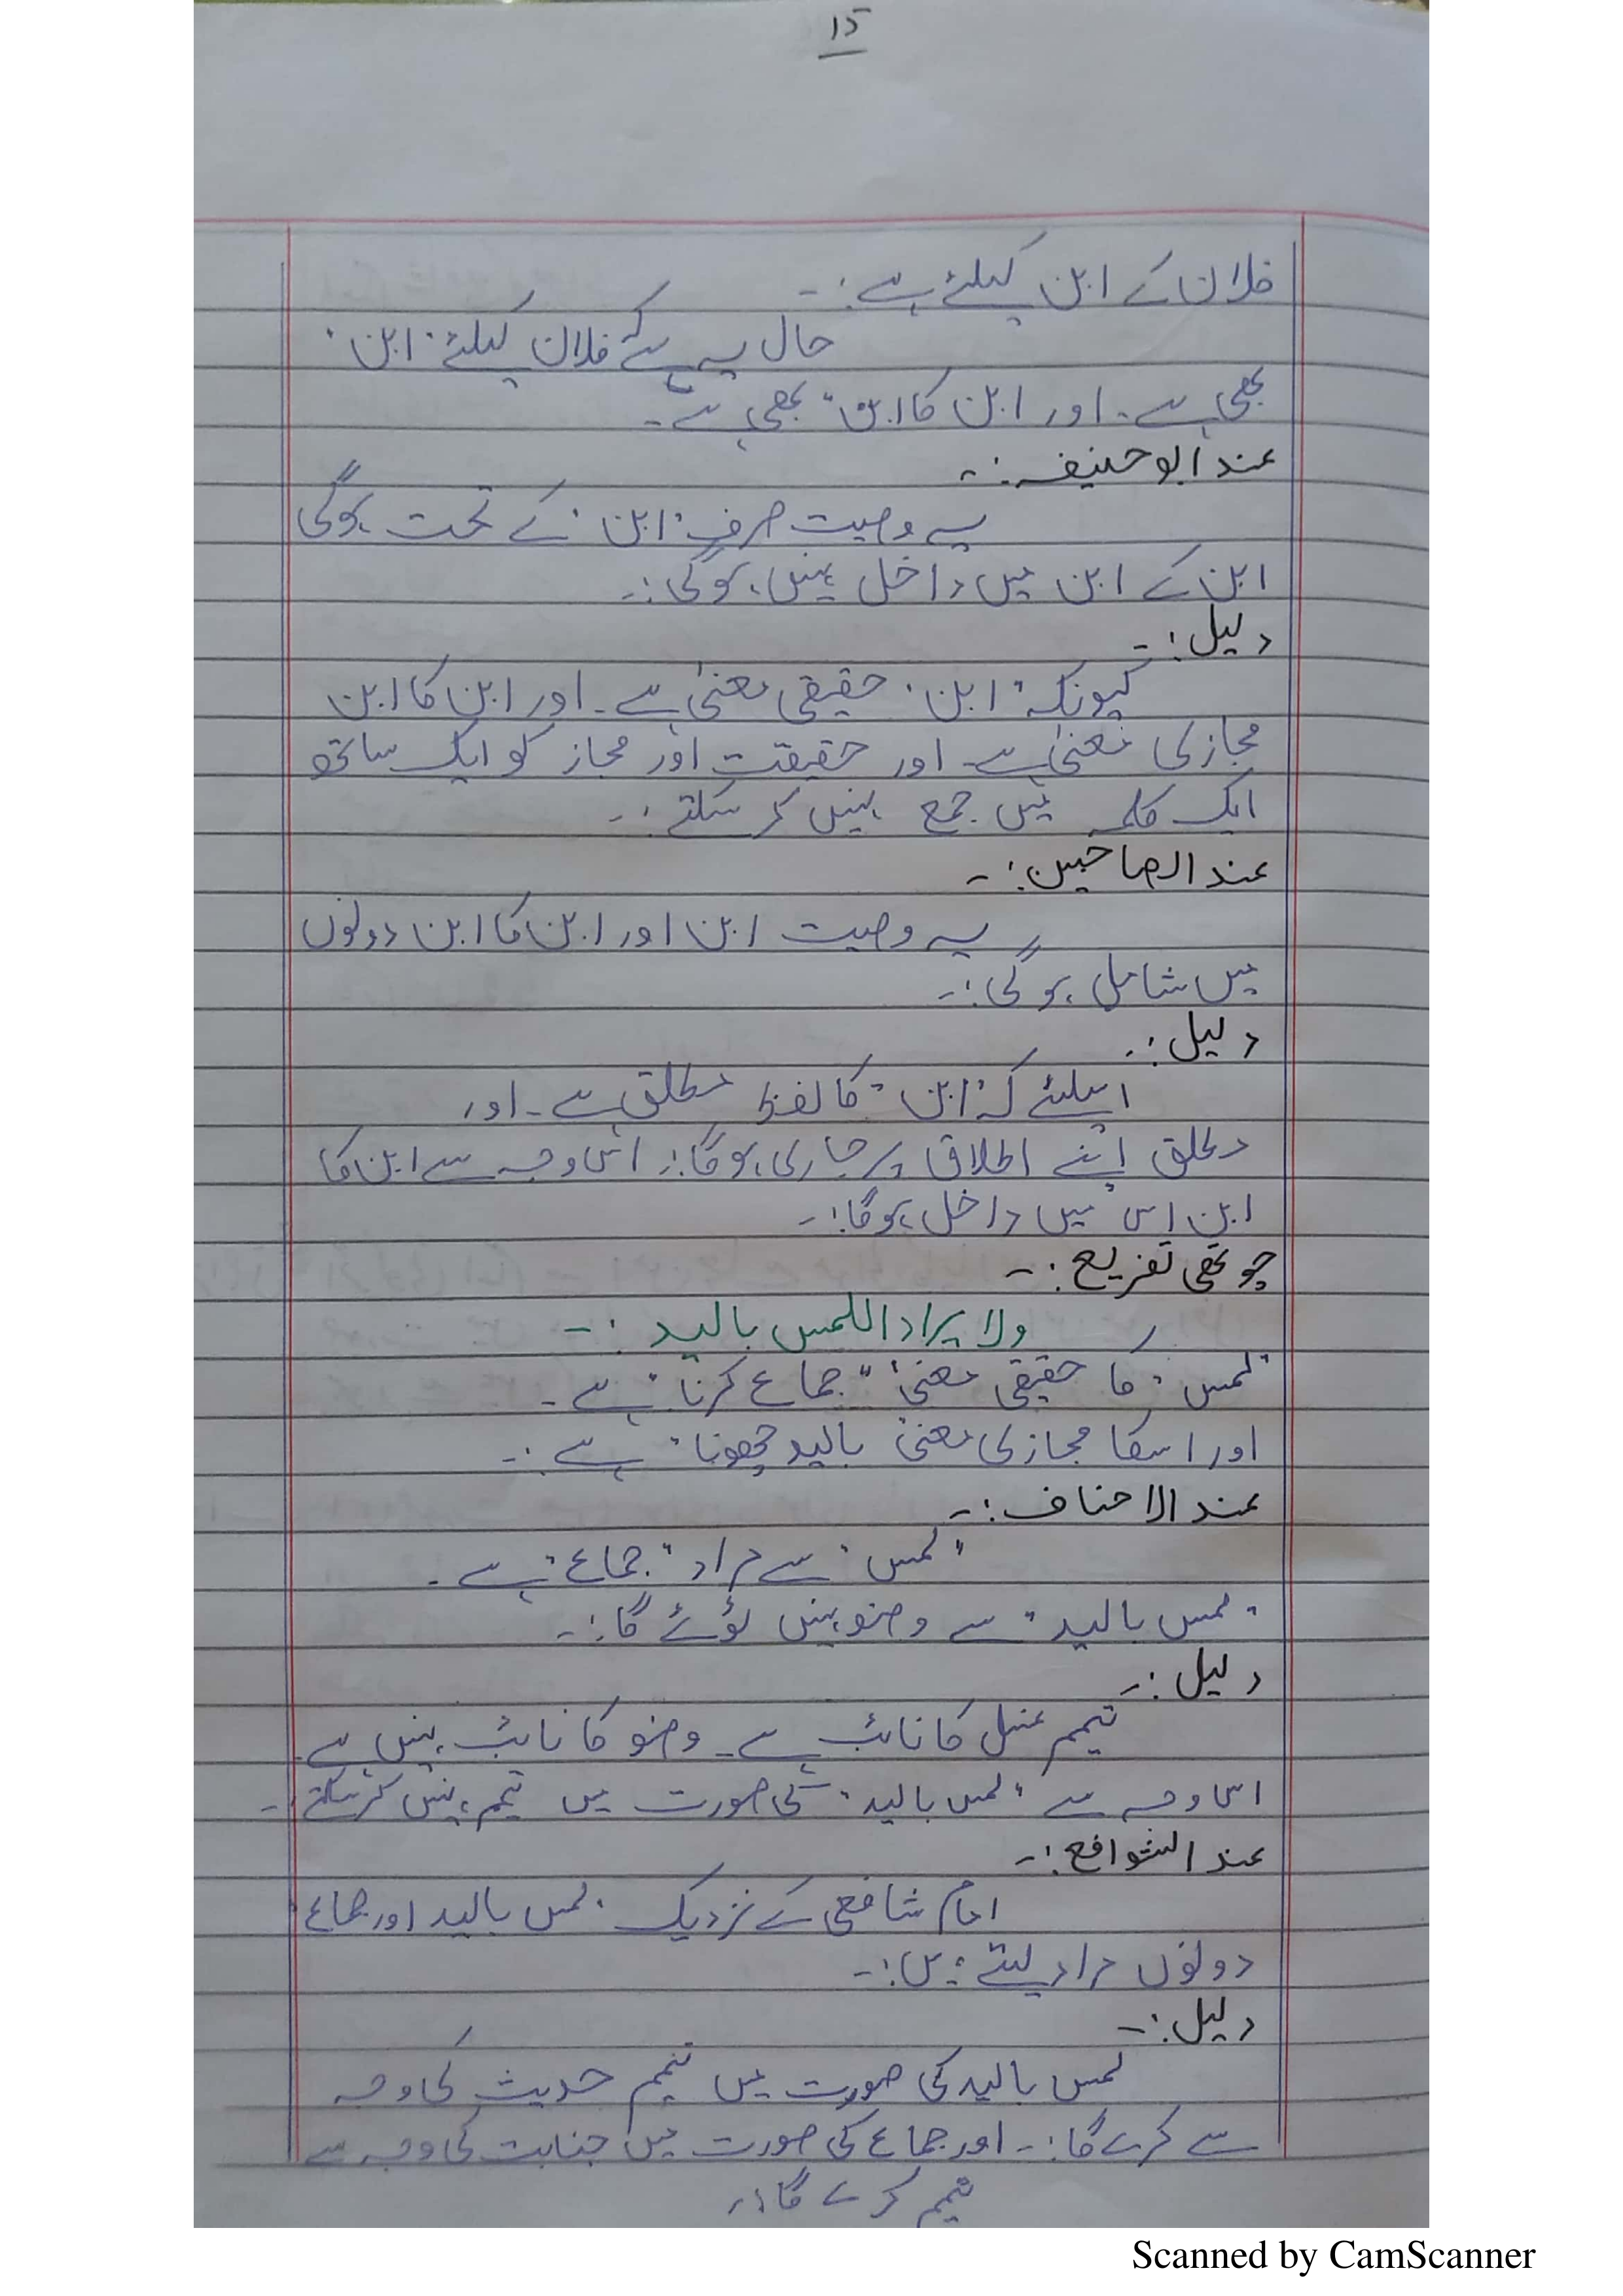 ۱۵
فلان کے ابن کیلئے ہے:-
حال یہ ہے کے فلان کیلئے "ابن"
بھی ہے۔ اور ابن کا ابن" بھی ہے۔
عند ابو حنیفہ:-
یہ وصیت صرف "ابن" کے تحت ہوگی
ابن کے ابن میں داخل نہیں ہوگی:-
دلیل:-
کیونکہ "ابن" حقیقی معنیٰ ہے۔ اور ابن کا ابن
مجازی معنیٰ ہے۔ اور حقیقت اور مجاز کو ایک ساتھ
ایک کلمہ میں جمع نہیں کر سکتے:-
عند الصاحبین:-
یہ وصیت ابن اور ابن کا ابن دونوں
میں شامل ہوگی:-
دلیل:-
اسلئے کہ "ابن" کا لفظ مطلق ہے۔ اور
مطلق اپنے اطلاق پر جاری ہوگا:۔ اس وجہ سے ابن کا
ابن اس میں داخل ہوگا:-
چوتھی تفریع:-
ولا یراد اللمس بالید:-
"لمس" کا حقیقی معنیٰ "جماع کرنا" ہے۔
اور اسکا مجازی معنیٰ "بالید چھونا" ہے:-
عند الاحناف:-
"لمس" سے مراد "جماع" ہے۔
"لمس بالید" سے وضو نہیں ٹوٹے گا:-
دلیل:-
تیمم غسل کا نائب ہے۔ وضو کا نائب نہیں ہے۔
اس وجہ سے "لمس بالید" کی صورت میں تیمم نہیں کرسکتے۔
عند الشوافع:-
امام شافعی کے نزدیک "لمس بالید اور جماع"
دونوں مراد لیتے ہیں:-
دلیل:-
لمس بالید کی صورت میں تیمم حدیث کی وجہ
سے کرے گا:- اور جماع کی صورت میں جنابت کی وجہ سے
تیمم کرے گا:-
Scanned by CamScanner